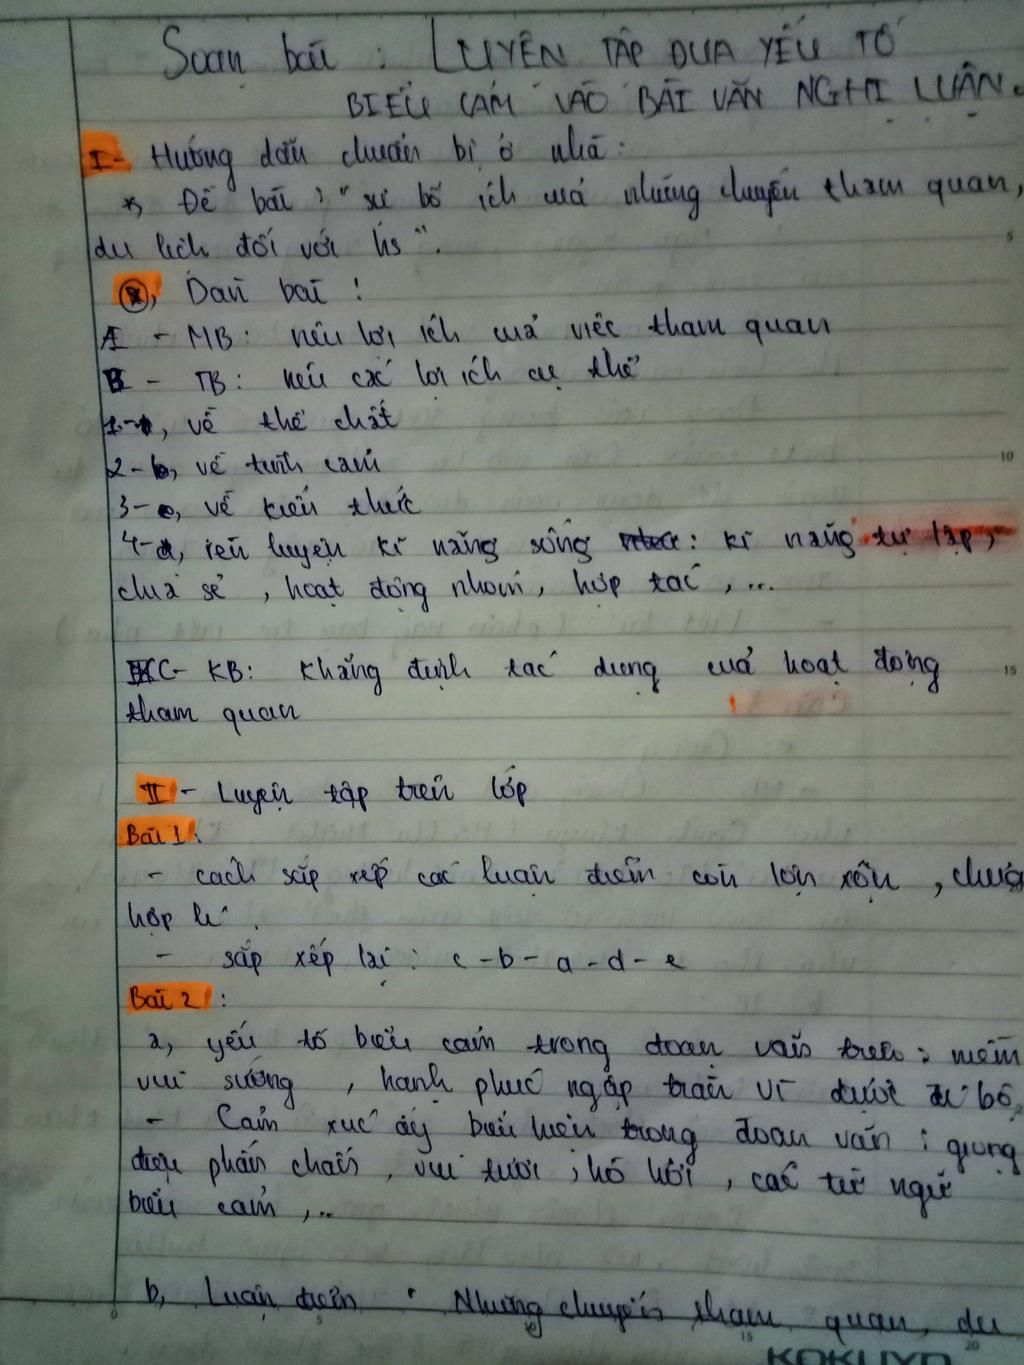 Soạn bài : LUYỆN TẬP ĐƯA YẾU TỐ
BIỂU CẢM VÀO BÀI VĂN NGHỊ LUẬN.
I- Hướng dẫn chuẩn bị ở nhà :
*, Đề bài : " sự bổ ích của những chuyến tham quan,
du lịch đối với hs ".
*, Dàn bài :
A - MB : nêu lợi ích của việc tham quan
B - TB : nêu các lợi ích cụ thể
1-, về thể chất
2-b, về tình cảm
3-c, về kiến thức
4-d, rèn luyện kĩ năng sống : kĩ năng tự lập,
chia sẻ , hoạt động nhóm, hợp tác , ...
C- KB: Khẳng định tác dụng của hoạt động
tham quan
II - Luyện tập trên lớp
Bài 1 :
- cách sắp xếp các luận điểm còn lộn xộn , chưa
hợp lí .
- sắp xếp lại : c - b - a - d - e
Bài 2 :
a, yếu tố biểu cảm trong đoạn văn trên : niềm
vui sướng , hạnh phúc ngập tràn vì được đi bộ,
- Cảm xúc ấy biểu hiện trong đoạn văn : giọng
điệu phấn chấn, vui tươi , hồ hởi , các từ ngữ
biểu cảm , ...
b, Luận điểm : Những chuyến tham quan, du
5
10
15
0 5 10 15 20
KOKUYO